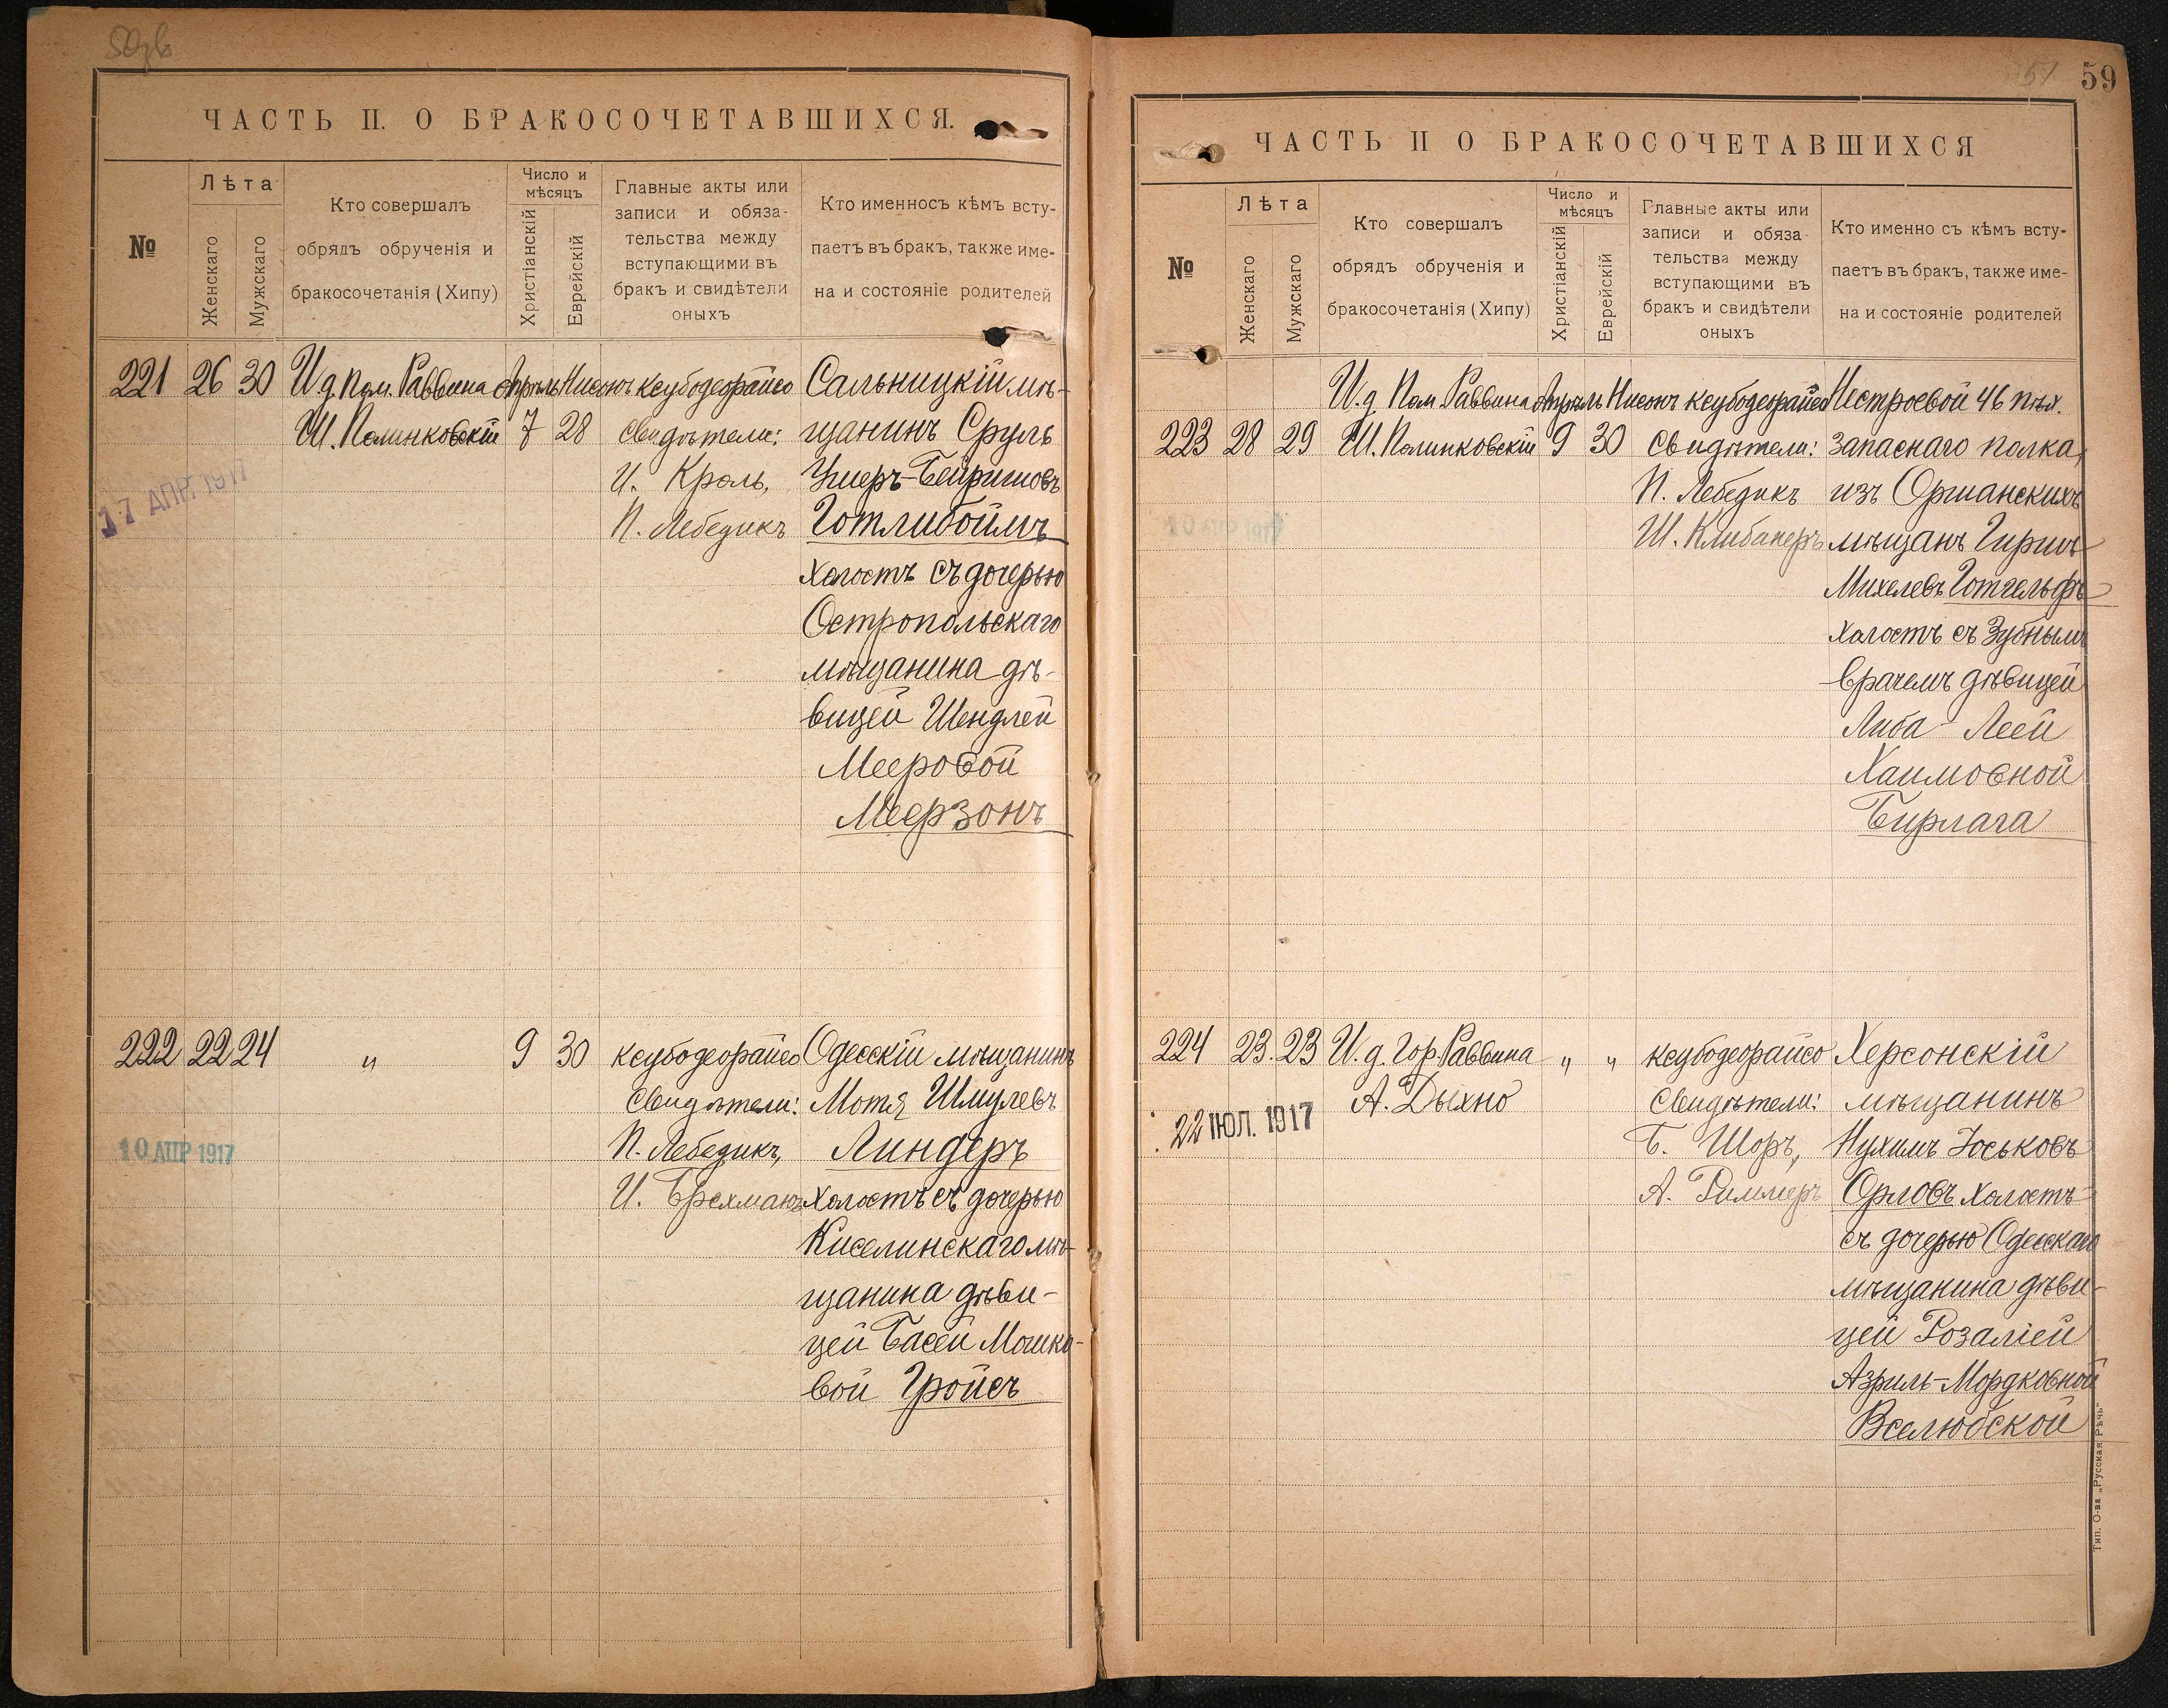 ЧАСТЬ II. О БРАКОСОЧЕТАВШИХСЯ.
№
Лѣта
Женскаго
Мужскаго
Кто совершалъ
обрядъ обрученія и
бракосочетанія (Хипу)
Число и
мѣсяцъ
Христіанскій
Еврейскій
Главные акты или
записи и обяза-
тельства между
вступающими въ
бракъ и свидѣтели
оныхъ
Кто именносъ кѣмъ всту-
паетъ въ бракъ, также име-
на и состояніе родителей
221 26 30
И.д. Пом. Раввина
Ш. Полинковскій
Апрѣль 7
Нисонъ 28
ксубодеорайсо
Свидѣтели:
И. Кроль,
П. Лебедикъ
Сальницкій мѣ-
щанинъ Сруль
Ушеръ-Бейришовъ
Готлибоймъ
холостъ съ дочерью
Остропольскаго
мѣщанина дѣ-
вицей Шендлей
Мееровой
Меерзонъ
17 АПР. 1917
222 22 24
"
9 30
ксубодеорайсо
Свидѣтели:
П. Лебедикъ,
И. Брехманъ
Одесскій мѣщанинъ
Мотя Шмулевъ
Линдеръ
холостъ съ дочерью
Киселинскаго мѣ-
щанина дѣви-
цей Басей Мошко-
вой Гройсъ
10 АПР 1917
59
51
ЧАСТЬ II О БРАКОСОЧЕТАВШИХСЯ
№
Лѣта
Женскаго
Мужскаго
Кто совершалъ
обрядъ обрученія и
бракосочетанія (Хипу)
Число и
мѣсяцъ
Христіанскій
Еврейскій
Главные акты или
записи и обяза
тельства между
вступающими въ
бракъ и свидѣтели
оныхъ
Кто именно съ кѣмъ всту-
паетъ въ бракъ, также име-
на и состояніе родителей
223 28 29
И.д. Пом. Раввина
Ш. Полинковскій
Апрѣль 9
Нисонъ 30
ксубодеорайсо
Свидѣтели:
П. Лебедикъ
Ш. Клибанеръ
Нестроевой 46 пѣх.
запаснаго полка,
изъ Оршанскихъ
мѣщанъ Гиршъ
Михелевъ Готгельфъ
холостъ съ Зубнымъ
врачемъ дѣвицей
Либа-Леей
Хаимовной
Бирлага
224 23. 23
И.д. Гор. Раввина
А. Дыхно
" "
ксубодеорайсо
Свидѣтели:
Б. Шоръ,
А. Риммеръ
Херсонскій
мѣщанинъ
Нухимъ Юсьсковъ
Орловъ холостъ
съ дочерью Одесскаго
мѣщанина дѣви-
цей Розаліей
Азриль-Мордковной
Вселюбской
22 ІЮЛ. 1917
Тип. О-ва „Русская Рѣчь"